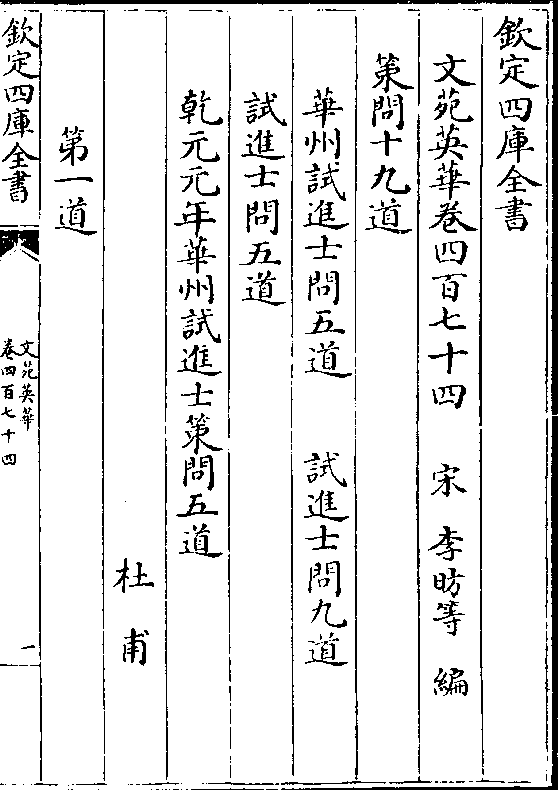 欽定四庫全書
文苑英華卷四百七十四 宋 李昉等 編
策問十九道
華州試進士問五道 試進士問九道
試進士問五道
乾元元年華州試進士策問五道
杜甫
第一道
欽定四庫全書
文苑英華
卷四百七十四
一